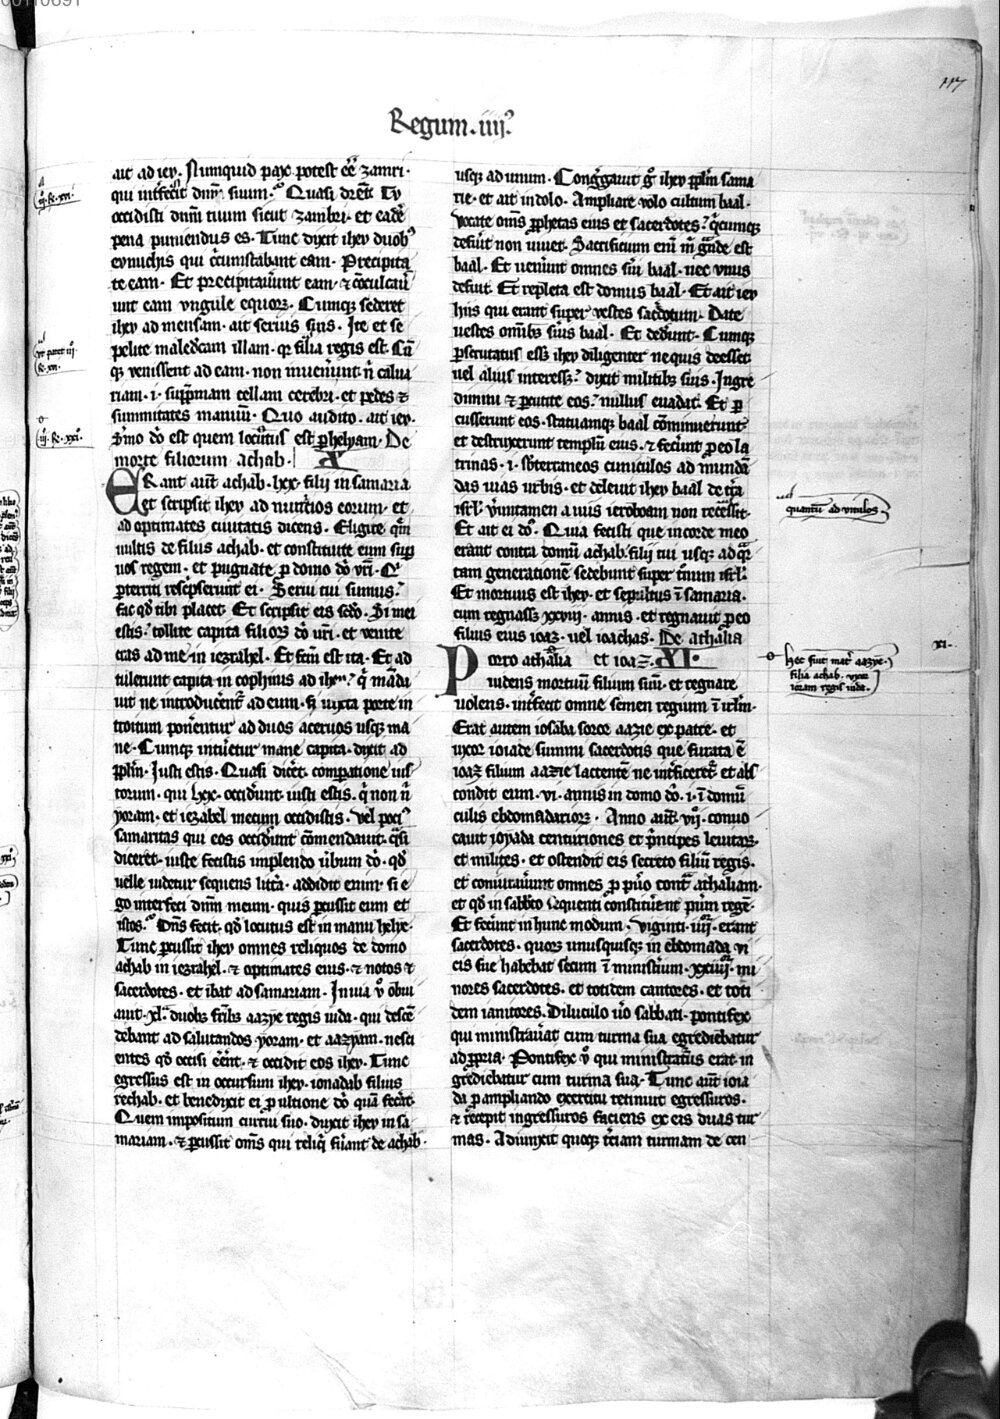 117
Regum . iiij.º
ait ad iey. Numquid pax potest cẽ zamri.
qui int̃fecit dnm̃ suum. Quasi dr̃et Tu
occidisti dnm̃ tuum sicut zambri. et eadẽ
pena puniendus es. Tunc dixit ihey duobꝰ
eunuchis qui c̃cumstabant eam. Precipita
te eam. Et precipitauerũt eam. ⁊ cõculcaũ
unt eam vngule equorꝝ. Cumqꝫ sederet
ihey ad mensam. ait seruis suis. Ite et se
pelite maledc̃am illam. qꝛ filia regis est. Cũ
qꝫ venissent ad eam. non inuener̃t ñ calua
riam. i. supp̃mam cellam cerebri. et pedes ⁊
summitates manuũ. Quo audito. ait iey.
Sm̃o dõ est quem locutus est p̱ helyam. De
morte filiorum achab. X
ERant aut̃ achab. lxx. filii in samaria
et scripsit ihey ad nutricios eorum. et
ad optimates ciuitatis dicens. Eligite qm̃
uultis de filiis achab. et constituite eum sup̱
uos regem. et pugnate p̱ domo dõ vr̃i. Qi
p̱territi rescpserunt ei. Serui tui sumus.
fac qd̃ tibi placet. Et scripsit eis scdo. Si mei
estis. tollite capita filiorꝝ dõ ur̃i. et venite
cras ad me in iezrahel. Et fc̃m est ita. Et ad
tulerunt capita in cophinis ad ihey. q̃ mãda
uit ne introducer̃et̃ ad eum. sꝫ iuxta porte in
troitum ponerentur ad duos aceruos usqꝫ ma
ne. Cumqꝫ intuetur mane capita. dixit ad
pp̃lm̃. Iusti estis. Quasi dicet̃. comp̱atione ius
torum. qui lxx. occider̃unt iusti estis. q̃ non ñ
yoram. et iezabel mecum occidistis. vel pociꝰ
samaritas qui eos occider̃t cõmendauit. q̃si
diceret. iuste fecistis implendo ũbum dõ. qd̃
uelle uidetur sequens litt̃a. addidit enim. si e
go interfeci dnm̃ meum. quis p̱cussit eum et
istos. Dñs fecit. qd̃ locutus est in manu helye.
Tunc p̱cussit ihey omnes reliquos de domo
achab in iezrahel. ⁊ optimates eius. ⁊ notos ⁊
sacerdotes. et ibat ad samariam. In uia ṽ obui
auit. xl. duobꝫ frãbꝫ aazye regis iuda. qui descẽ
debant ad salutandos yoram. et aazyam. nesci
entes qd̃ occisi eẽnt. ⁊ occidit eos ihey. Tunc
egressus est in occursum ihey. ionadab filius
rechab. et benedixit ei p̱ ultione dõ quã fecat̃.
Quem impositum currui suo. duxit ihey in sa
mariam. ⁊ p̱cussit om̃s qui reliq̃ fũant de achab.
usqꝫ ad unum. Congregauit g̊ ihey pp̃lm̃ sama
rie. et ait in dolo. Ampliare volo cultum baal.
Vocate om̃s p̱phetas eius et sacerdotes. q̃cumqꝫ
defũit non uiuet. Sacrificium em̃ m̃ g̃nde est
baal. Et uener̃unt omnes s̃ui baal. nec vnus
defuit. Et repleta est domus baal. Et ait iey
hiis qui erant super vestes sac̃dotum. Date
uestes om̃ibꝫ s̃uis baal. Et deder̃unt. Cumqꝫ
p̱scrutatus ess̃ ihey diligenter ne quis deesset
uel alius interess̃. dixit militibꝫ suis. Ingre
dimini ⁊ p̱cutite eos. nullus euadat. Et p̱
cusserunt eos. statuamqꝫ baal cõminuerunt
et destruxerunt templũ eius. ⁊ fecer̃unt p̱ eo la
trinas. i. sb̃terraneos cuniculos ad mundã
das uias urbis. et deleuit ihey baal de tr̃a
isrl̃. verũtamen a uiis ieroboam non recessit.
Et ait ei dõ. Quia fecisti que in corde meo
erant contra domũ achab. filii tui usqꝫ ad q̃r
tam generationẽ sedebunt super tr̃num isrl̃.
Et mortuus est ihey. et sepultus ĩ samaria.
cum regnass̃ xxviij. annis. et regnauit p̱ eo
filius eius ioaz. uel ioachas. De athalia
Porro athalia et ioaz. XI.
uidens mortuũ filium suũ. et regnare
uolens. int̃fecit omne semen regium ĩ ir̃lm̃.
Erat autem iosaba soror aazie ex patre. et
uxor ioiade summi sacerdotis que furata ẽ
ioaz filium aazie lactentẽ ne int̃ficeret̃ et abs
condit eum. vi. annis in domo dõ. i. ĩ domũ
culis ebdomadariorꝝ. Anno aut̃ vij. conuo
cauit ioyada centuriones et p̃ncipes leuitarꝝ.
et milites. et ostendit eis secreto filiũ regis.
et coniurauer̃unt omnes p̱ puõ cont̃ athaliam.
et qd̃ in sabb̃to sequenti constituerent puũm regẽ.
Et fecer̃unt in hunc modum. Viginti iiij. erant
sacerdotes. quorꝝ unusquisqꝫ in ebdomada vi
cis sue habebat secum ĩ ministerium. xxiiij. mi
nores sacerdotes. et totidem cantores. et toti
dem ianitores. Diluculo ṽo sabbati. pontifex
qui ministrauat̃ cum turma sua egrediebatur
ad p̱pria. Pontifex ṽ qui ministrat̃us erat in
grediebatur cum turma sua. Tunc aut̃ ioia
da p̱ ampliando exercitu retinuit egressuros.
⁊ r̃cepit ingressuros faciens ex eis duas tur
mas. Adiunxit quoqꝫ t̃ciam turmam de cen
quantũ ad vitulos
XI.
hec fuit mat̃ aazye.
filia achab. vxor
ioram regis iuda.